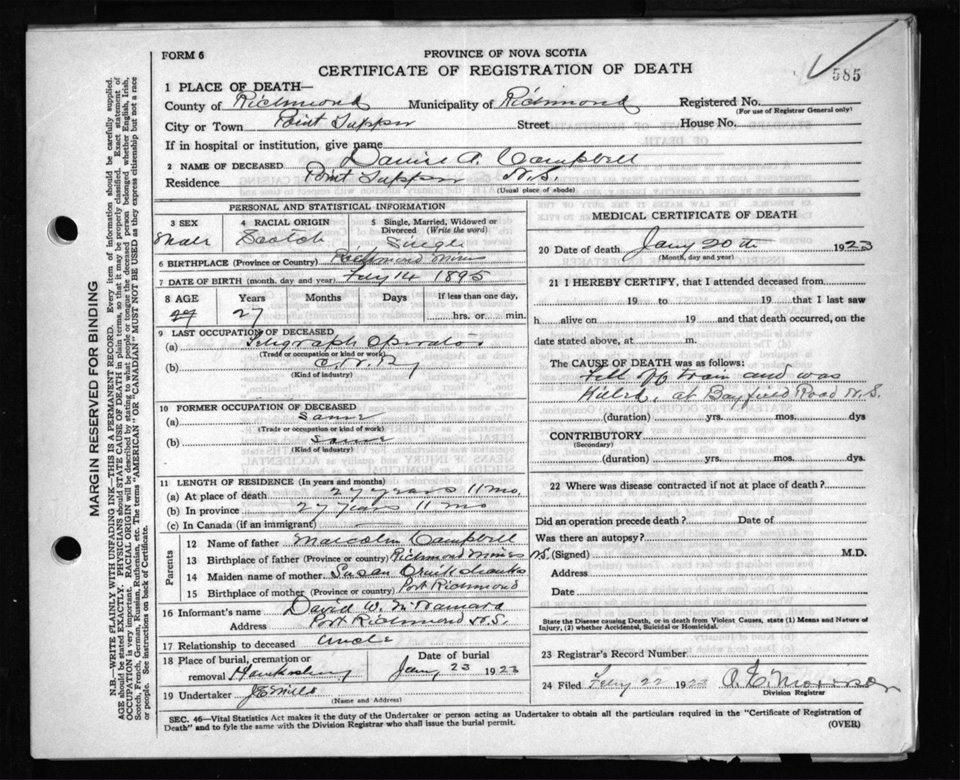 FORM 6
PROVINCE OF NOVA SCOTIA
CERTIFICATE OF REGISTRATION OF DEATH
585
1 PLACE OF DEATH—
County of Richmond Municipality of Richmond Registered No.
(For use of Registrar General only)
City or Town Point Tupper Street House No.
If in hospital or institution, give name
2 NAME OF DECEASED A. Campbell
Residence Point Tupper N.S.
(Usual place of abode)
PERSONAL AND STATISTICAL INFORMATION
3 SEX 4 RACIAL ORIGIN 5 Single, Married, Widowed or Divorced (Write the word)
Male Scotch Single
6 BIRTHPLACE (Province or Country) Richmond Mines
7 DATE OF BIRTH (month, day and year) Feby 14 1895
8 AGE Years Months Days If less than one day,
27 27 hrs. or min.
9 LAST OCCUPATION OF DECEASED
(a) Telegraph Operator
(Trade or occupation or kind or work)
(b) C.N.R.
(Kind of industry)
10 FORMER OCCUPATION OF DECEASED
(a) Same
(Trade or occupation or kind of work)
(b) Same
(Kind of industry)
11 LENGTH OF RESIDENCE (In years and months)
(a) At place of death 27 years 11 mo.
(b) In province 27 years 11 mo
(c) In Canada (if an immigrant)
Parents
12 Name of father Malcolm Campbell
13 Birthplace of father (Province or country) Richmond Mines N.S.
14 Maiden name of mother Susan Cruikshanks
15 Birthplace of mother (Province or country) Port Richmond
16 Informant's name David W. McNamara
Address Port Richmond N.S.
17 Relationship to deceased Uncle
18 Place of burial, cremation or removal Hawkesbury Date of burial Jany 23 1923
19 Undertaker
(Name and Address)
MEDICAL CERTIFICATE OF DEATH
20 Date of death Jany 20th 1923
(Month, day and year)
21 I HEREBY CERTIFY, that I attended deceased from
19 to 19 that I last saw
h alive on 19 and that death occurred, on the
date stated above, at m.
The CAUSE OF DEATH was as follows:
Fell off train and was
killed, at Bayfield Road N.S.
(duration) yrs. mos. dys
CONTRIBUTORY
(Secondary)
(duration) yrs. mos. dys.
22 Where was disease contracted if not at place of death?
Did an operation precede death? Date of
Was there an autopsy?
(Signed) M.D.
Address
Date
State the Disease causing Death, or in death from Violent Causes, state (1) Means and Nature of Injury, (2) whether Accidental, Suicidal or Homicidal.
23 Registrar's Record Number
24 Filed Feby 22 1923 Morrison
Division Registrar
SEC. 46—Vital Statistics Act makes it the duty of the Undertaker or person acting as Undertaker to obtain all the particulars required in the "Certificate of Registration of
Death" and to fyle the same with the Division Registrar who shall issue the burial permit. (OVER)
MARGIN RESERVED FOR BINDING
N.B.—WRITE PLAINLY WITH UNFADING INK—THIS IS A PERMANENT RECORD. Every item of information should be carefully supplied.
AGE should be stated EXACTLY. PHYSICIANS should STATE CAUSE OF DEATH in plain terms, so that it may be properly classified. Exact statement of
OCCUPATION is very important. RACIAL ORIGIN will be described by stating to what people or tongue the deceased person belonged whether English, Irish,
Scotch, French, German, Russian, Ruthenian, etc. The terms "AMERICAN" OR "CANADIAN" MUST NOT BE USED as they express citizenship but not a race
or people. See instructions on back of Certificate.